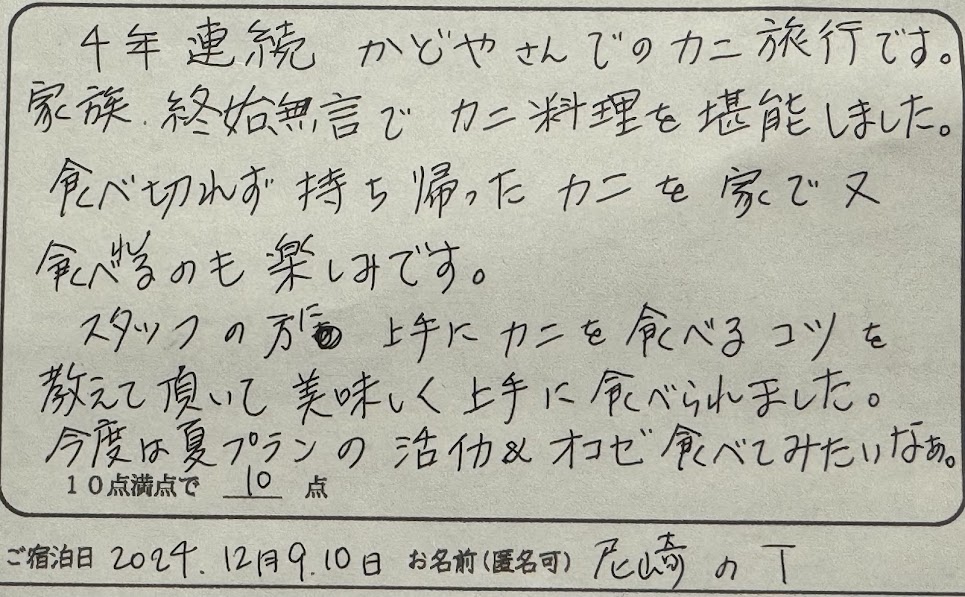 4年連続 かどやさんでのカニ旅行です。
家族、終始無言で カニ料理を堪能しました。
食べ切れず持ち帰ったカニを家で又
食べれるのも楽しみです。
スタッフの方に 上手にカニを食べるコツを
教えて頂いて美味しく上手に食べられました。
今度は夏プランの活イカ&オコゼ食べてみたいなぁ。
10点満点で 10 点
ご宿泊日 2024. 12月9.10日 お名前(匿名可) 尼崎のT